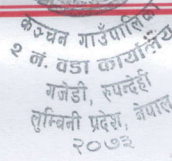 कञ्चन गाउँपालिका
२ नं. वडा कार्यालय
गजेडी, रुपन्देही
लुम्बिनी प्रदेश, नेपाल
२०७३